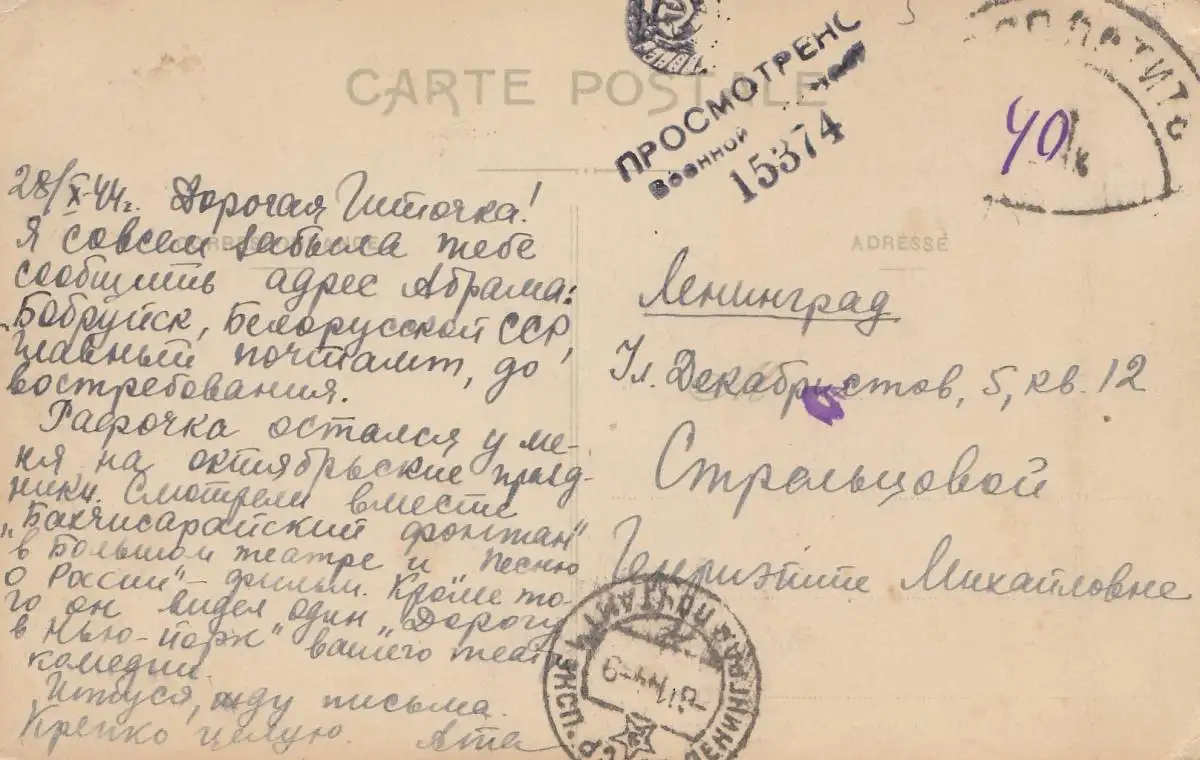 CARTE POSTALE
ПРОСМОТРЕНО
Военной
15374
40
ADRESSE
28/X 44 г. Дорогая Гиточка!
Я совсем забыла тебе
сообщить адрес Абрама:
Бобруйск, Белорусской ССР,
главный почтамт, до
востребования.
Рафочка остался у ме-
ня на октябрьские празд-
ники. Смотрели вместе
„Бахчисарайский фонтан"
в Большом театре и „Песню
о России" – фильм. Кроме то-
го он видел один „Дорогу
в Нью-Йорк" вашего теат
комедии.
Гитуся, жду письма.
Крепко целую. Ата
Ленинград
Ул. Декабристов, 5, кв. 12
Стрельцовой
Генриэтте Михайловне
ЛЕНИНГРАД ПОЧТАМТ